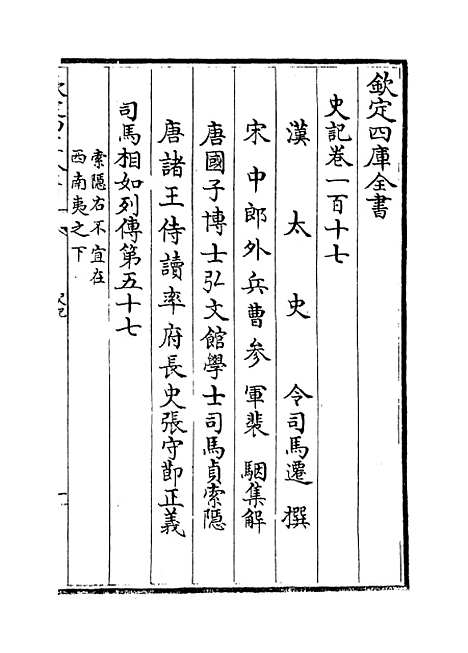 欽定四庫全書
史記卷一百十七
漢太史令司馬遷撰
宋中郎外兵曹參軍裴駰集解
唐國子博士弘文館學士司馬貞索隱
唐諸王侍讀率府長史張守節正義
司馬相如列傳第五十七
索隱右不宜在
西南夷之下